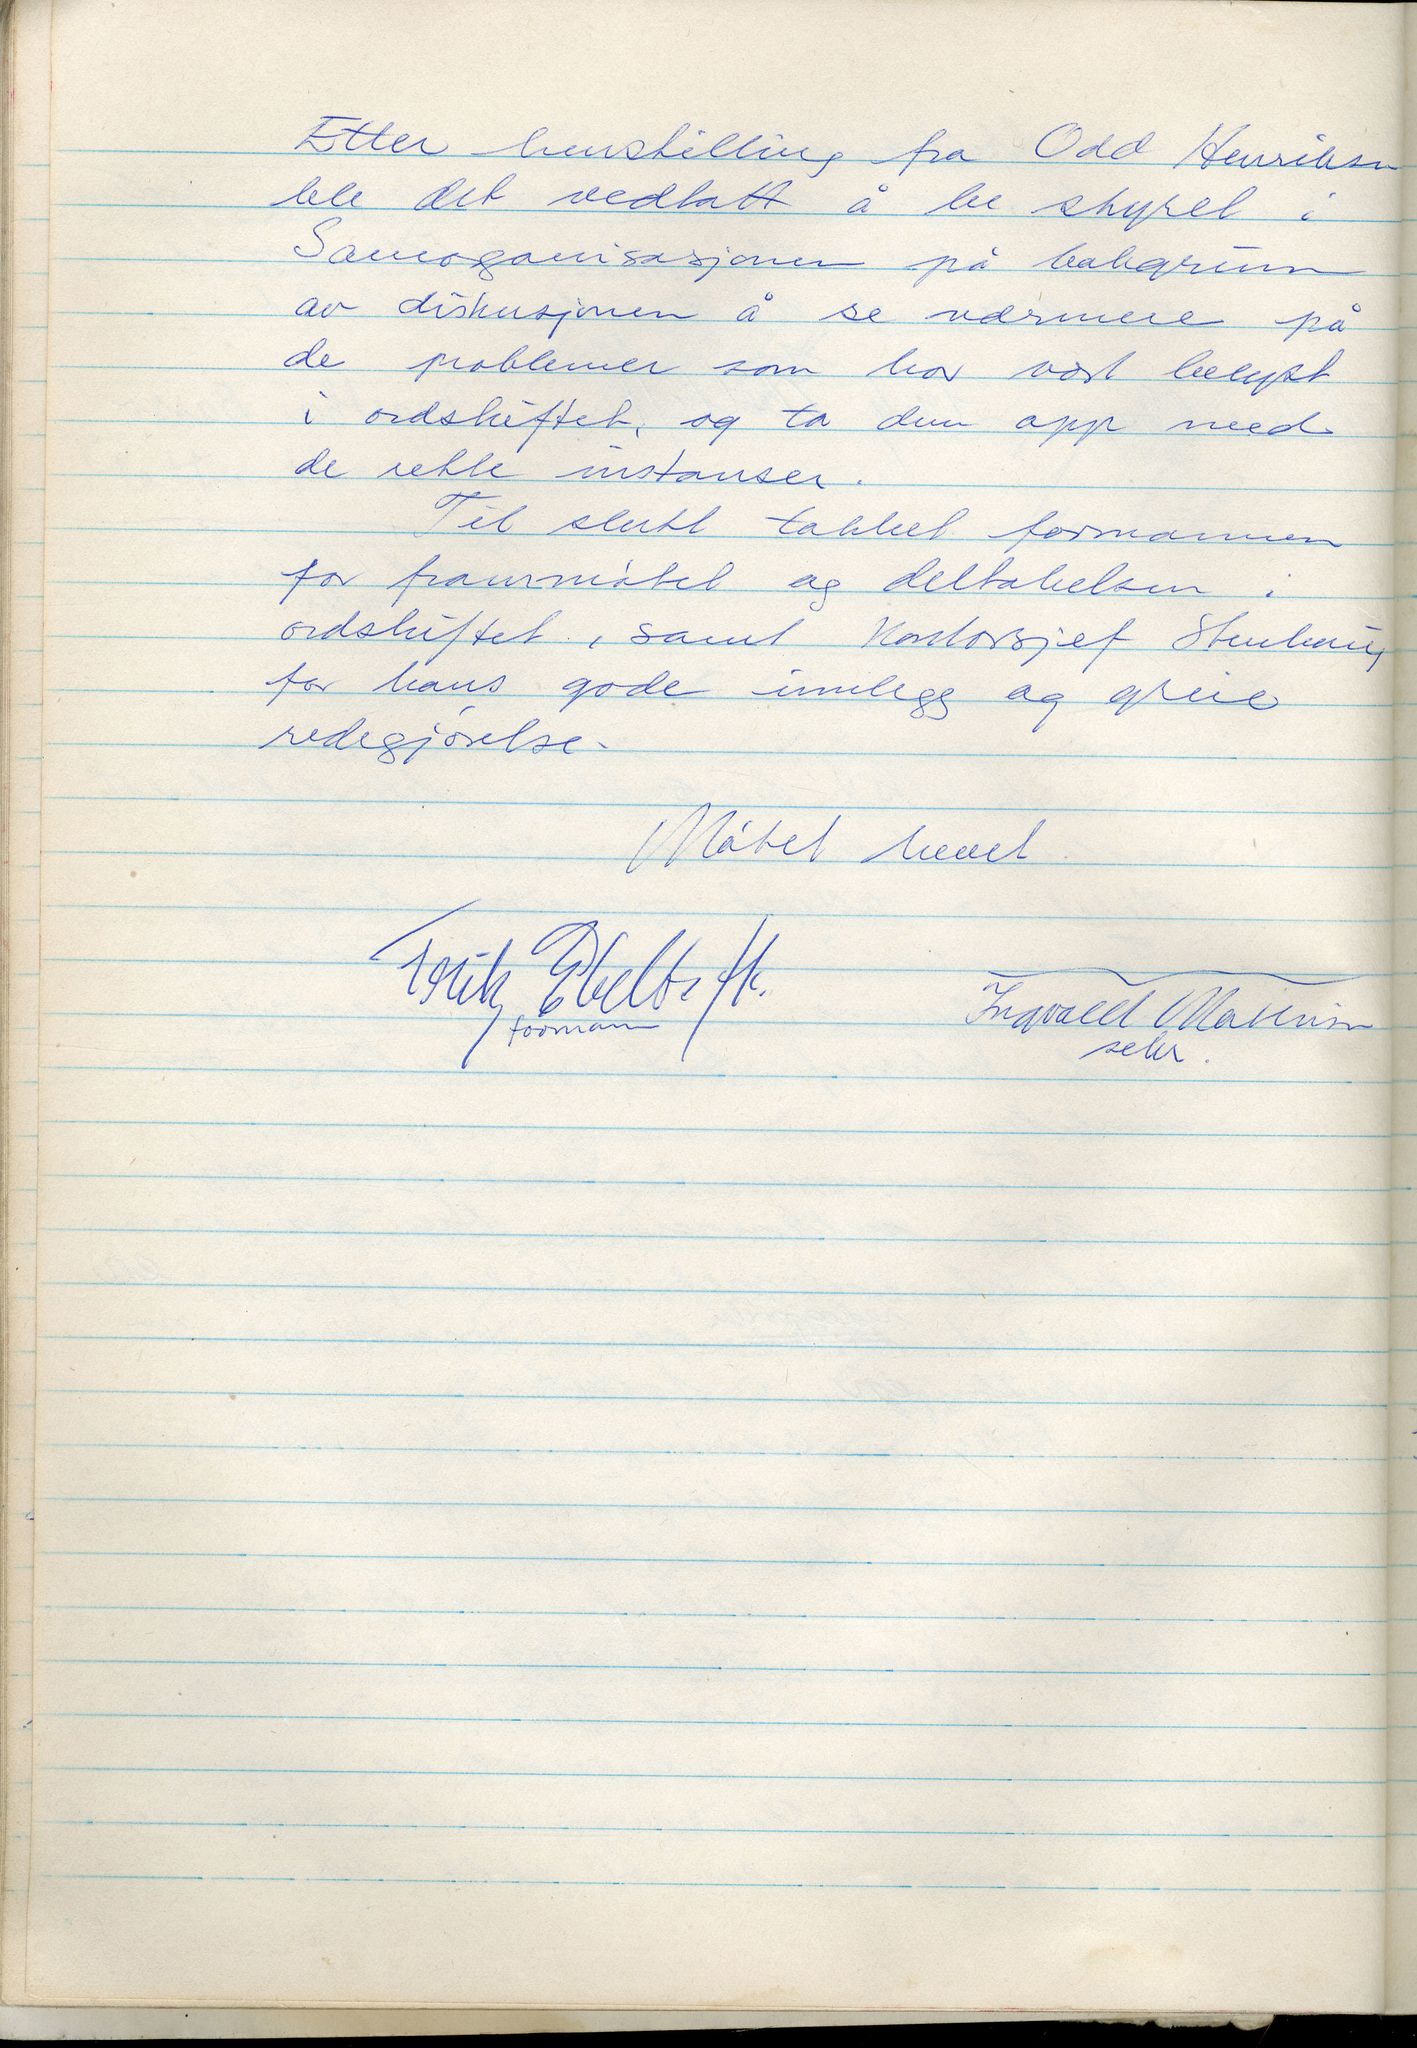 Etter henstilling fra Odd Henriksen
ble det vedtatt å be styret i
Samorganisasjonen på bakgrunn
av diskusjonen å se nærmere på
de problemer som har vært belyst
i ordskiftet, og ta dem opp med
de rette instanser.
Til slutt takket formannen
for frammøtet og deltakelsen i
ordskiftet, samt Kontorsjef
for hans gode innlegg og greie
redegjørelse.
Møtet hevet.
formann
Ingvald
sekr.